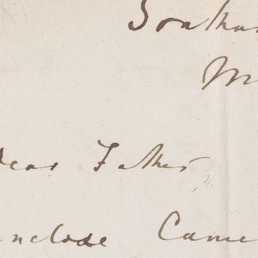 Southa
M
ear Father
nclose Came